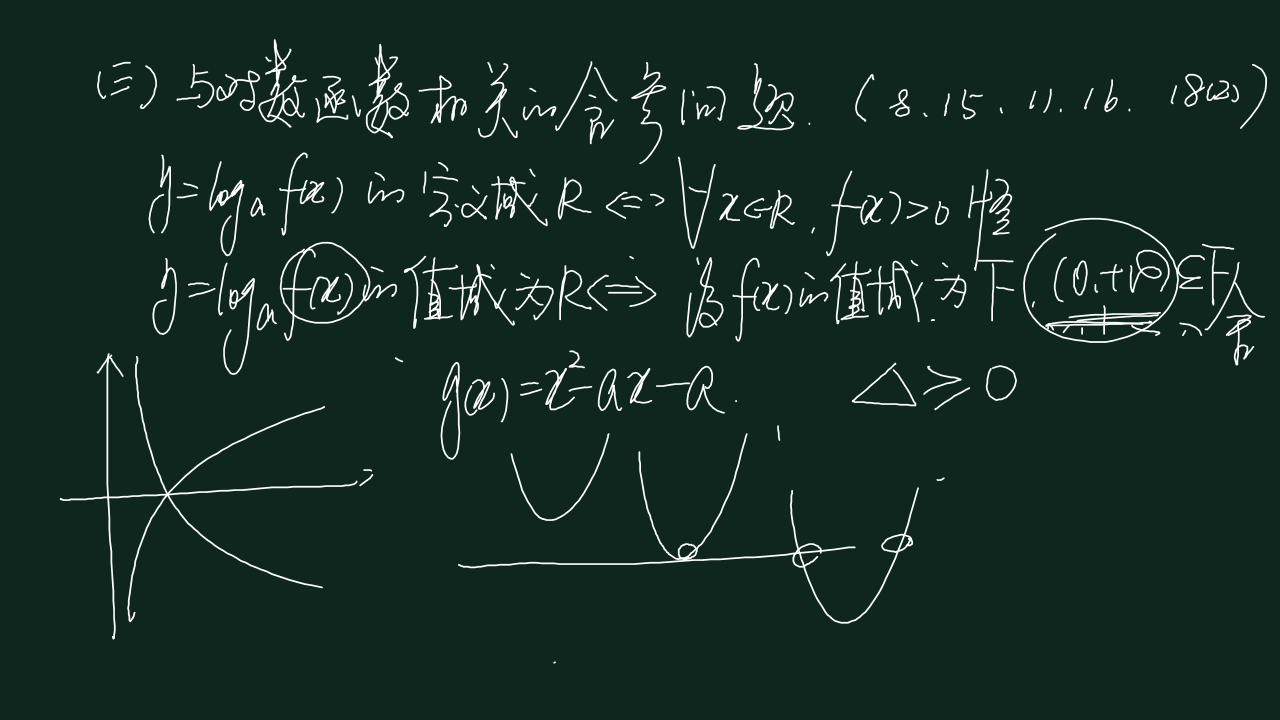 (三) 与对数函数相关的含参问题. (8. 15. 11. 16. 18(2))
y=logₐf(x) 的定义域 R ⇔ ∀x∈R, f(x)>0 恒
y=logₐf(x) 的值域为 R ⇔ f(x) 的值域为 (0,+∞)
g(x)=x²-ax-a. △≥0